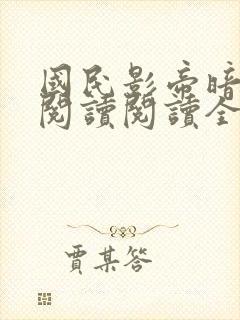 國民影帝暗
閱讀閱讀全
賈某答